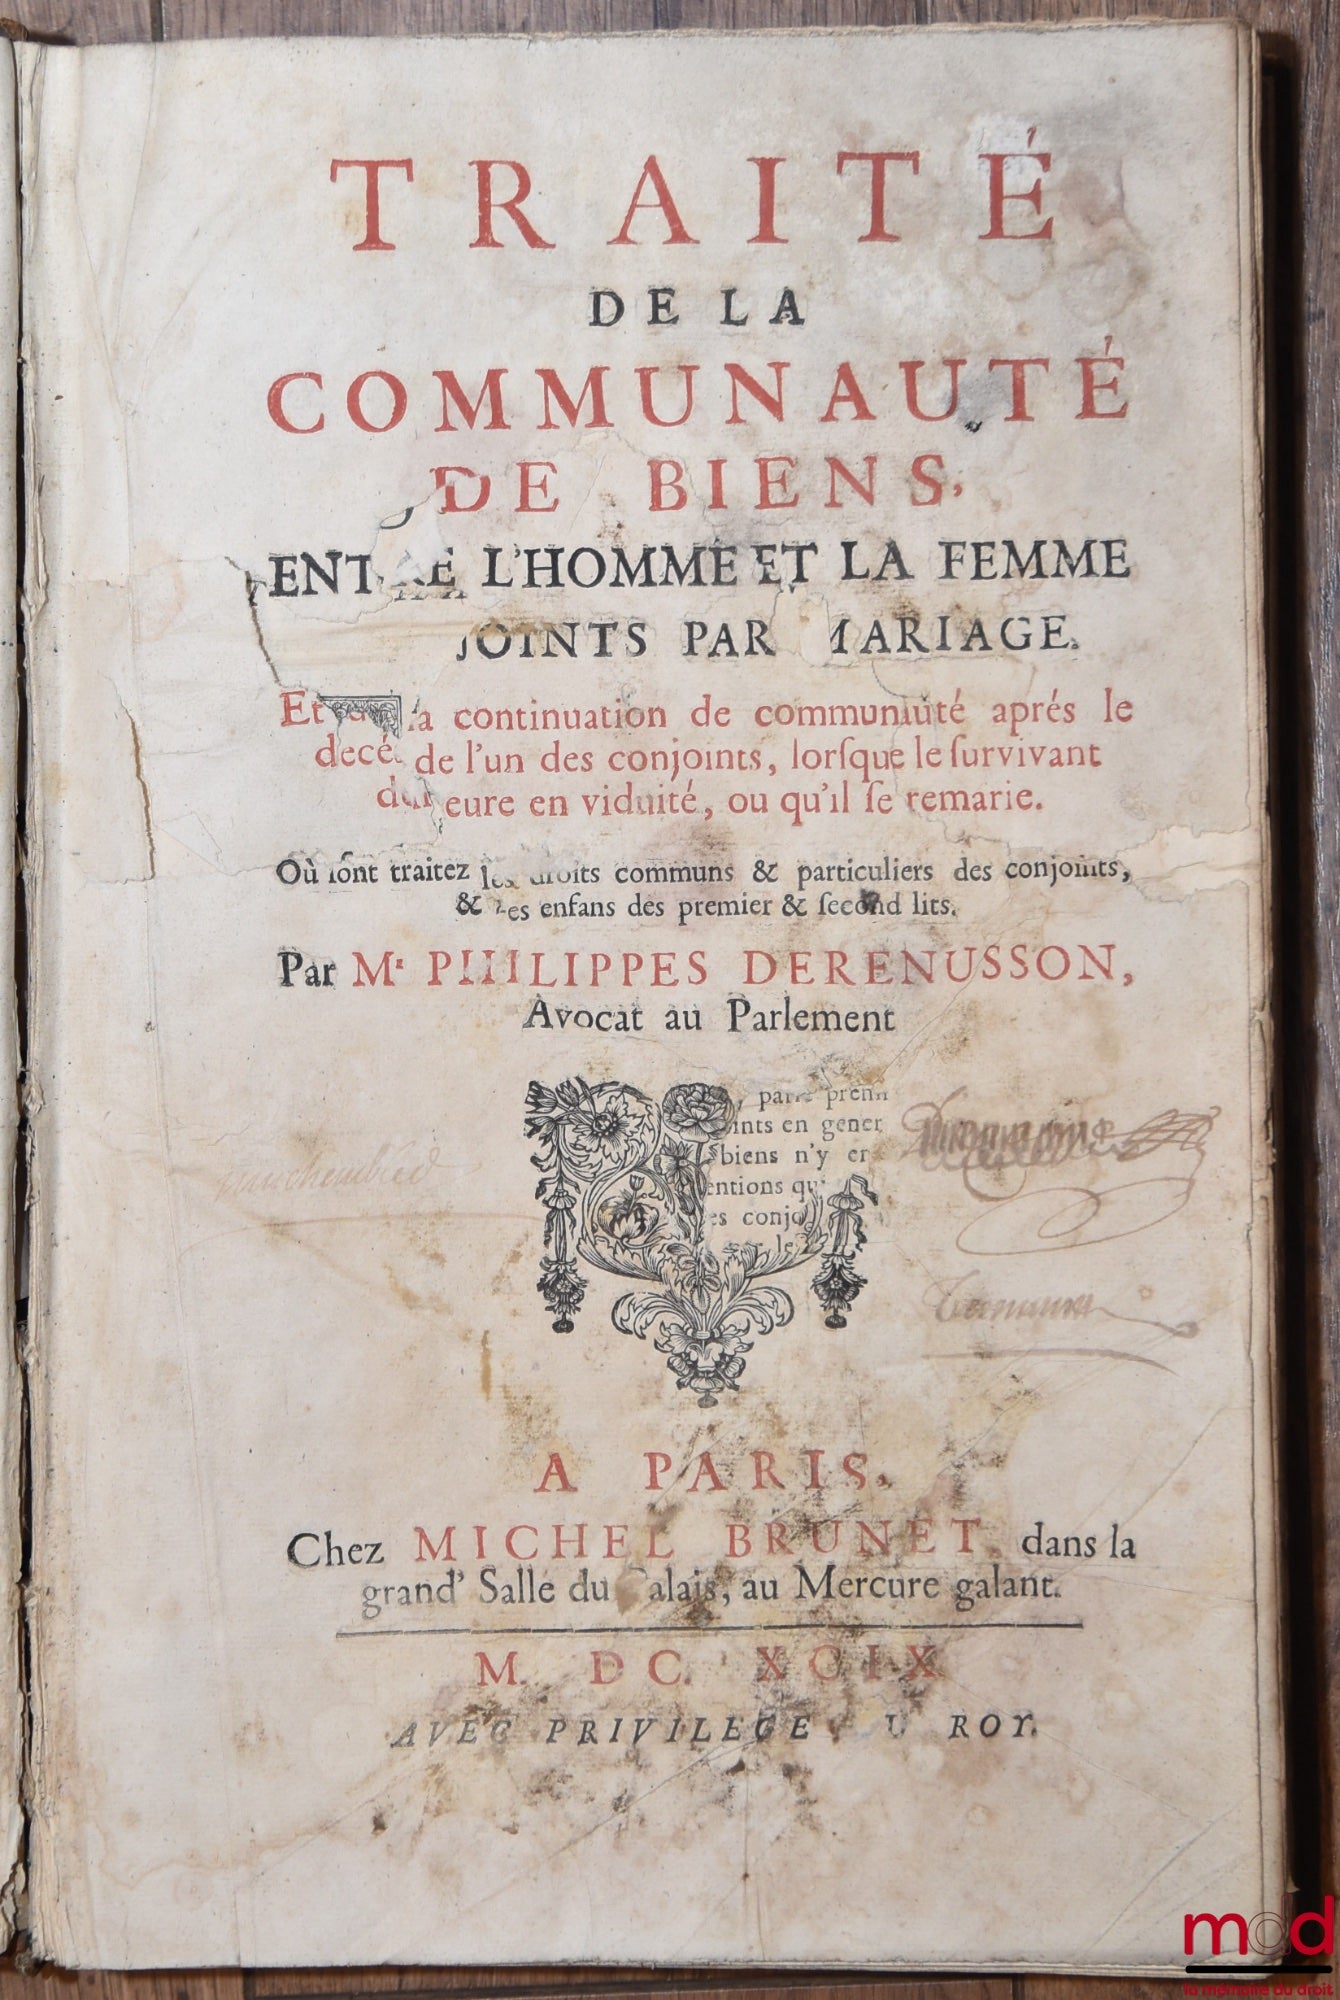 TRAITÉ
DE LA
COMMUNAUTÉ
DE BIENS,
ENTRE L'HOMME ET LA FEMME
JOINTS PAR MARIAGE.
Et la continuation de communauté aprés le
decé de l'un des conjoints, lorsque le survivant
eure en viduité, ou qu'il se remarie.
Où sont traitez les droits communs & particuliers des conjoints,
& des enfans des premier & second lits.
Par Mr PHILIPPES DERENUSSON,
Avocat au Parlement
, partie prenn
ints en gener
biens n'y er
entions qu
es conjo
le
A PARIS,
Chez MICHEL BRUNET, dans la
grand' Salle du Palais, au Mercure galant.
M. DC. XCIX
AVEC PRIVILEGE DU ROY.
mdd
la mémoire du droit